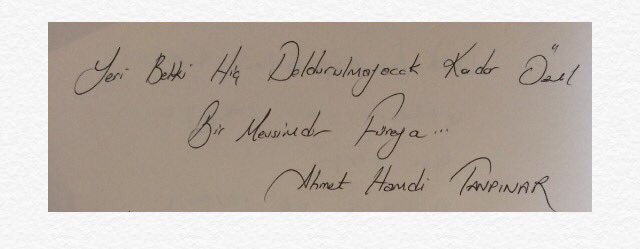 Yeri Belki Hiç Doldurulmayacak Kadar Özel
Bir Mevsimdir Füreya...
Ahmet Hamdi TANPINAR